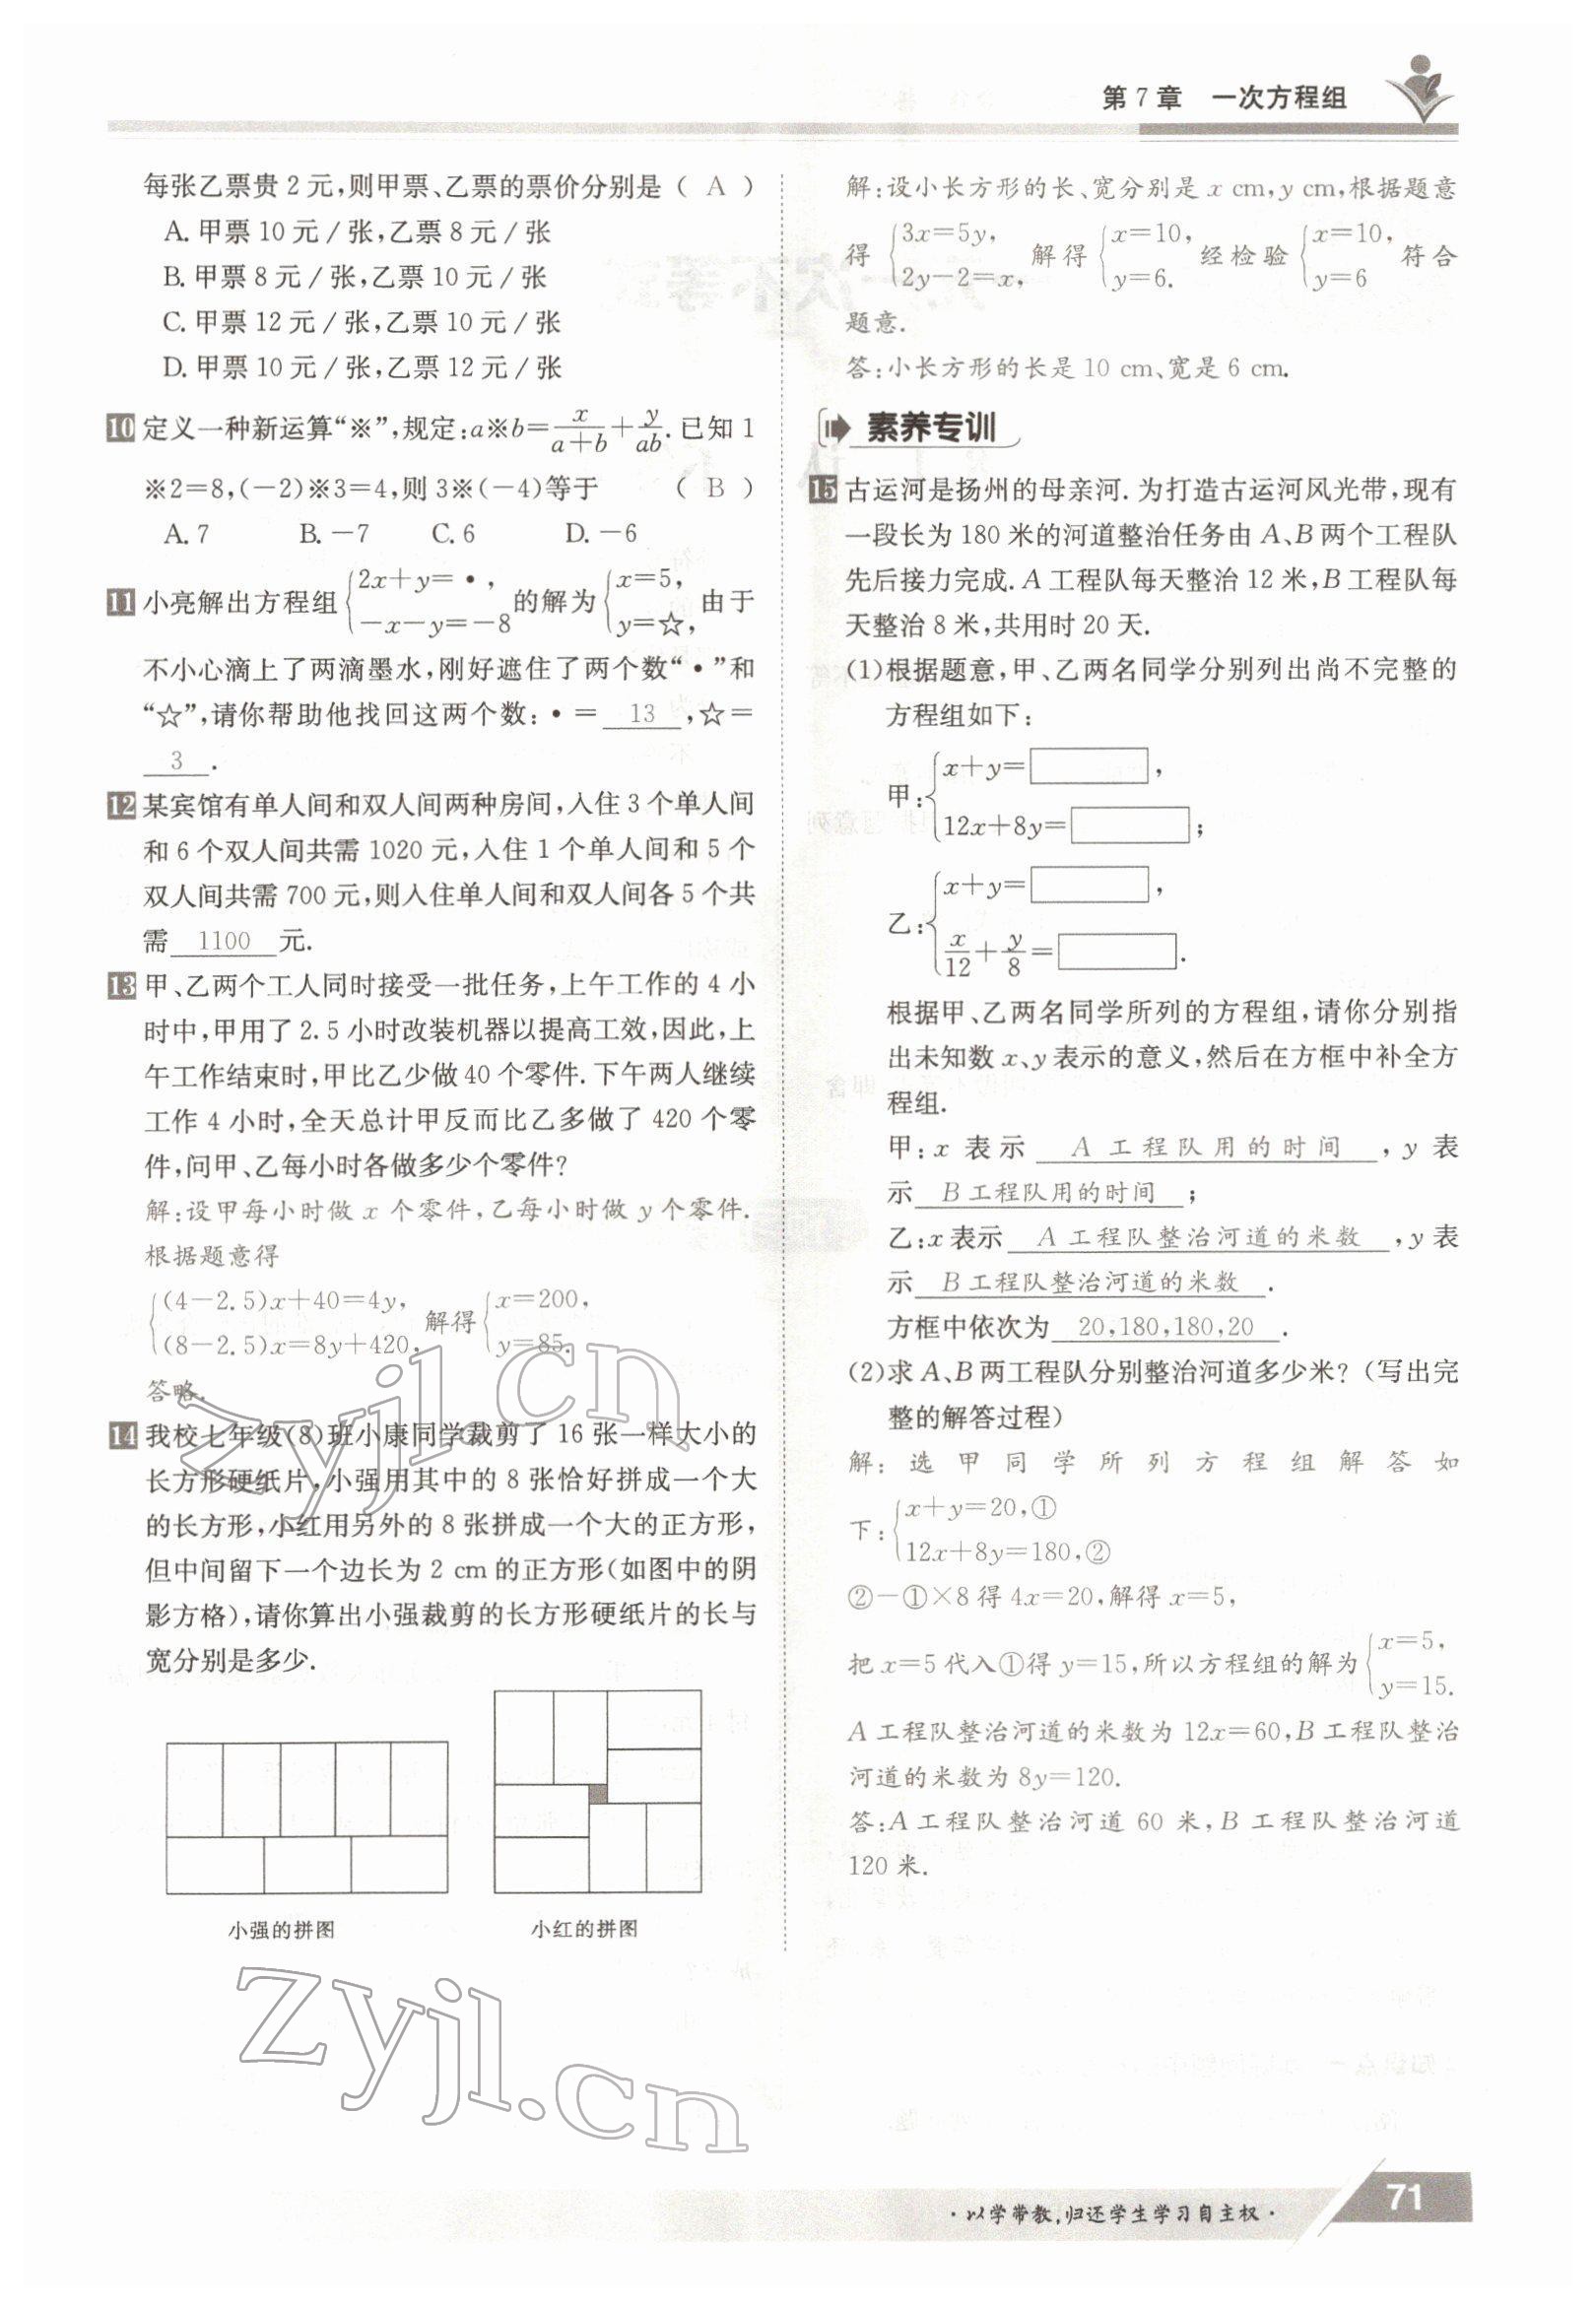 第7章 一次方程组
每张乙票贵2元,则甲票、乙票的票价分别是( A )
A. 甲票10元/张,乙票8元/张
B. 甲票8元/张,乙票10元/张
C. 甲票12元/张,乙票10元/张
D. 甲票10元/张,乙票12元/张
10 定义一种新运算“※”,规定:a※b=x/(a+b)+y/(ab). 已知1
※2=8,(-2)※3=4,则3※(-4)等于 ( B )
A. 7 B. -7 C. 6 D. -6
11 小亮解出方程组{2x+y=•, -x-y=-8 的解为{x=5, y=☆, 由于
不小心滴上了两滴墨水,刚好遮住了两个数“•”和
“☆”,请你帮助他找回这两个数:•= 13 ,☆=
3 .
12 某宾馆有单人间和双人间两种房间,入住3个单人间
和6个双人间共需1020元,入住1个单人间和5个
双人间共需700元,则入住单人间和双人间各5个共
需 1100 元.
13 甲、乙两个工人同时接受一批任务,上午工作的4小
时中,甲用了2.5小时改装机器以提高工效,因此,上
午工作结束时,甲比乙少做40个零件. 下午两人继续
工作4小时,全天总计甲反而比乙多做了420个零
件,问甲、乙每小时各做多少个零件?
解:设甲每小时做x个零件,乙每小时做y个零件.
根据题意得
{(4-2.5)x+40=4y, (8-2.5)x=8y+420, 解得{x=200, y=85.
答略.
14 我校七年级(8)班小康同学裁剪了16张一样大小的
长方形硬纸片,小强用其中的8张恰好拼成一个大
的长方形,小红用另外的8张拼成一个大的正方形,
但中间留下一个边长为2 cm的正方形(如图中的阴
影方格),请你算出小强裁剪的长方形硬纸片的长与
宽分别是多少.
小强的拼图 小红的拼图
解:设小长方形的长、宽分别是x cm,y cm,根据题意
得{3x=5y, 2y-2=x, 解得{x=10, y=6. 经检验{x=10, y=6 符合
题意.
答:小长方形的长是10 cm、宽是6 cm.
素养专训
15 古运河是扬州的母亲河. 为打造古运河风光带,现有
一段长为180米的河道整治任务由A、B两个工程队
先后接力完成. A工程队每天整治12米,B工程队每
天整治8米,共用时20天.
(1)根据题意,甲、乙两名同学分别列出尚不完整的
方程组如下:
甲:{x+y=□, 12x+8y=□;
乙:{x+y=□, x/12+y/8=□.
根据甲、乙两名同学所列的方程组,请你分别指
出未知数x、y表示的意义,然后在方框中补全方
程组.
甲:x表示 A工程队用的时间 ,y表
示 B工程队用的时间 ;
乙:x表示 A工程队整治河道的米数 ,y表
示 B工程队整治河道的米数 .
方框中依次为 20,180,180,20 .
(2)求A、B两工程队分别整治河道多少米?(写出完
整的解答过程)
解:选甲同学所列方程组解答如
下:{x+y=20,① 12x+8y=180,②
②-①×8得4x=20,解得x=5,
把x=5代入①得y=15,所以方程组的解为{x=5, y=15.
A工程队整治河道的米数为12x=60,B工程队整治
河道的米数为8y=120.
答:A工程队整治河道60米,B工程队整治河道
120米.
zyjl.cn
zyjl.cn
·以学带教,归还学生学习自主权·
71